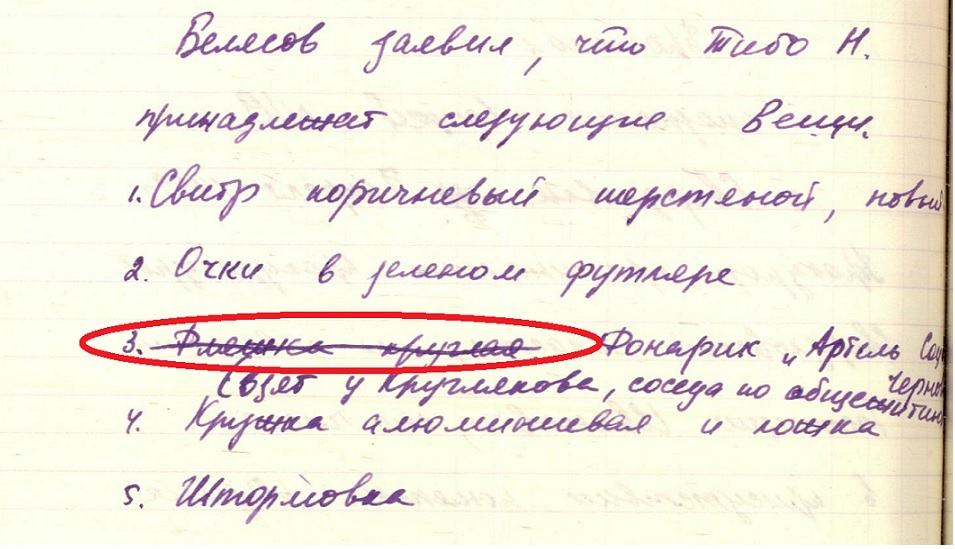 Белесов заявил, что Тибо Н.
принадлежат следующие вещи.
1. Свитр коричневый шерстяной, новый
2. Очки в зеленом футляре
3. Фляжка круглая. Фонарик „Артель
(взят у Круглякова, соседа по общежитию
4. Кружка алюминиевая и ложка
5. Штормовка